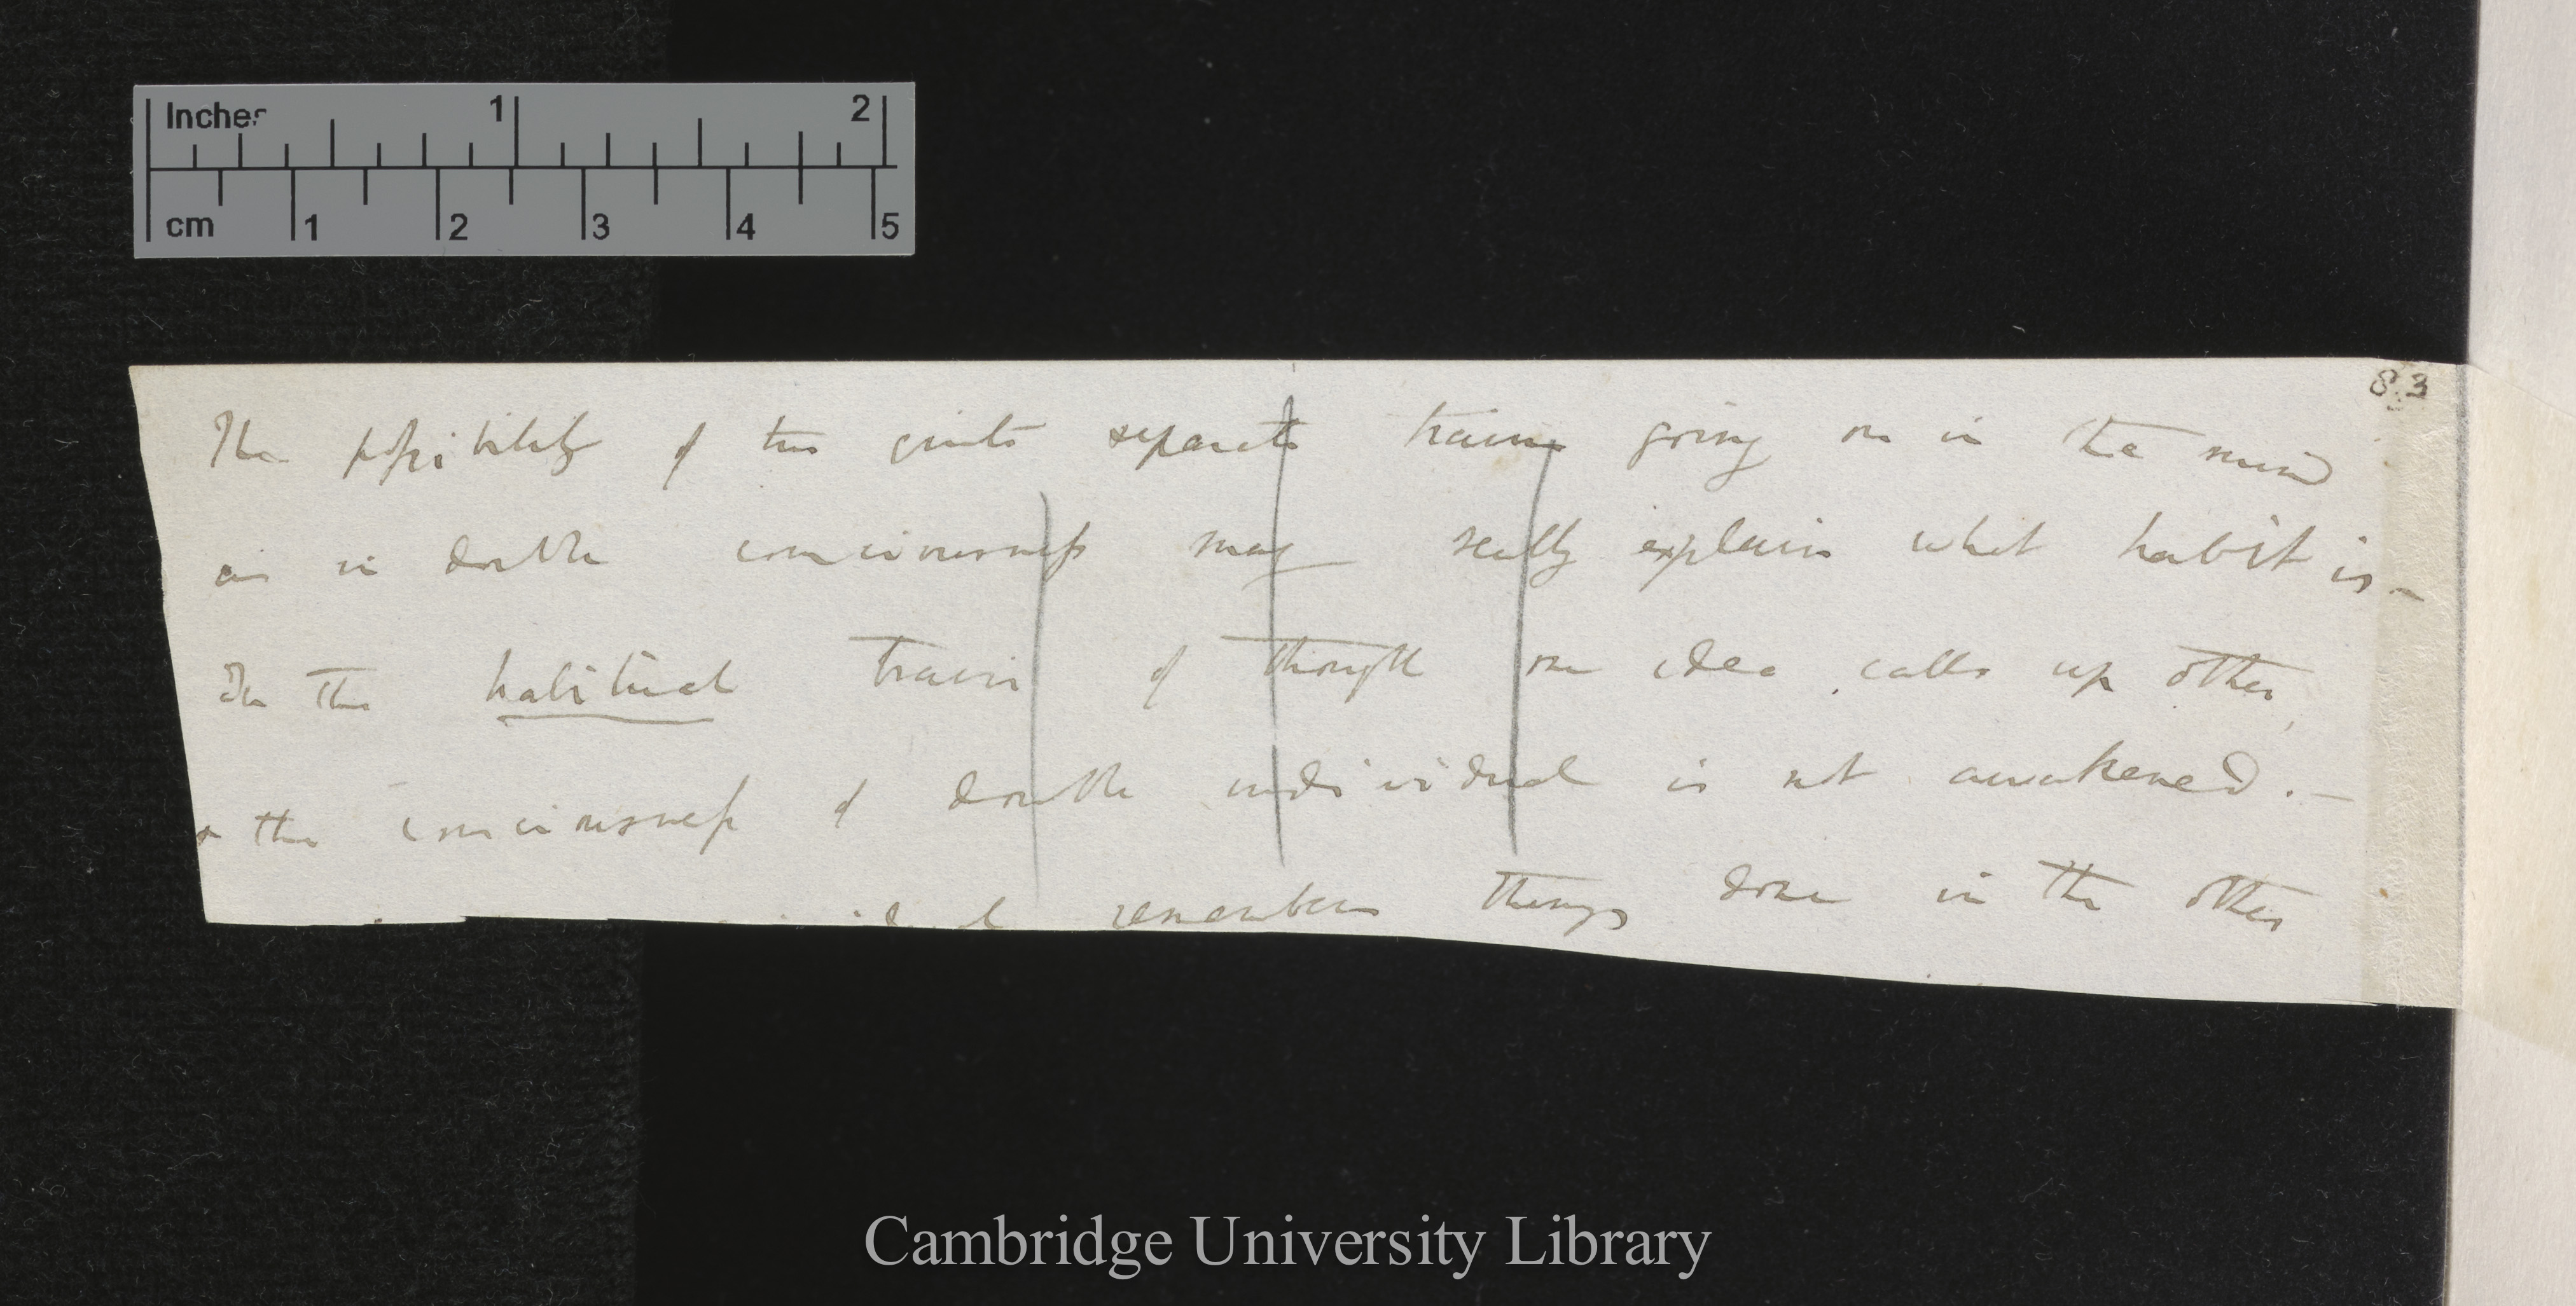 Inches 1 2
cm 1 2 3 4 5
83
The possibility of two quite separate trains going on in the mind
as in double consciousness may really explain what habit is —
In the habitual train of thought one idea calls up other,
& the consciousness of double individual is not awakened. —
remembers things done in the other
Cambridge University Library